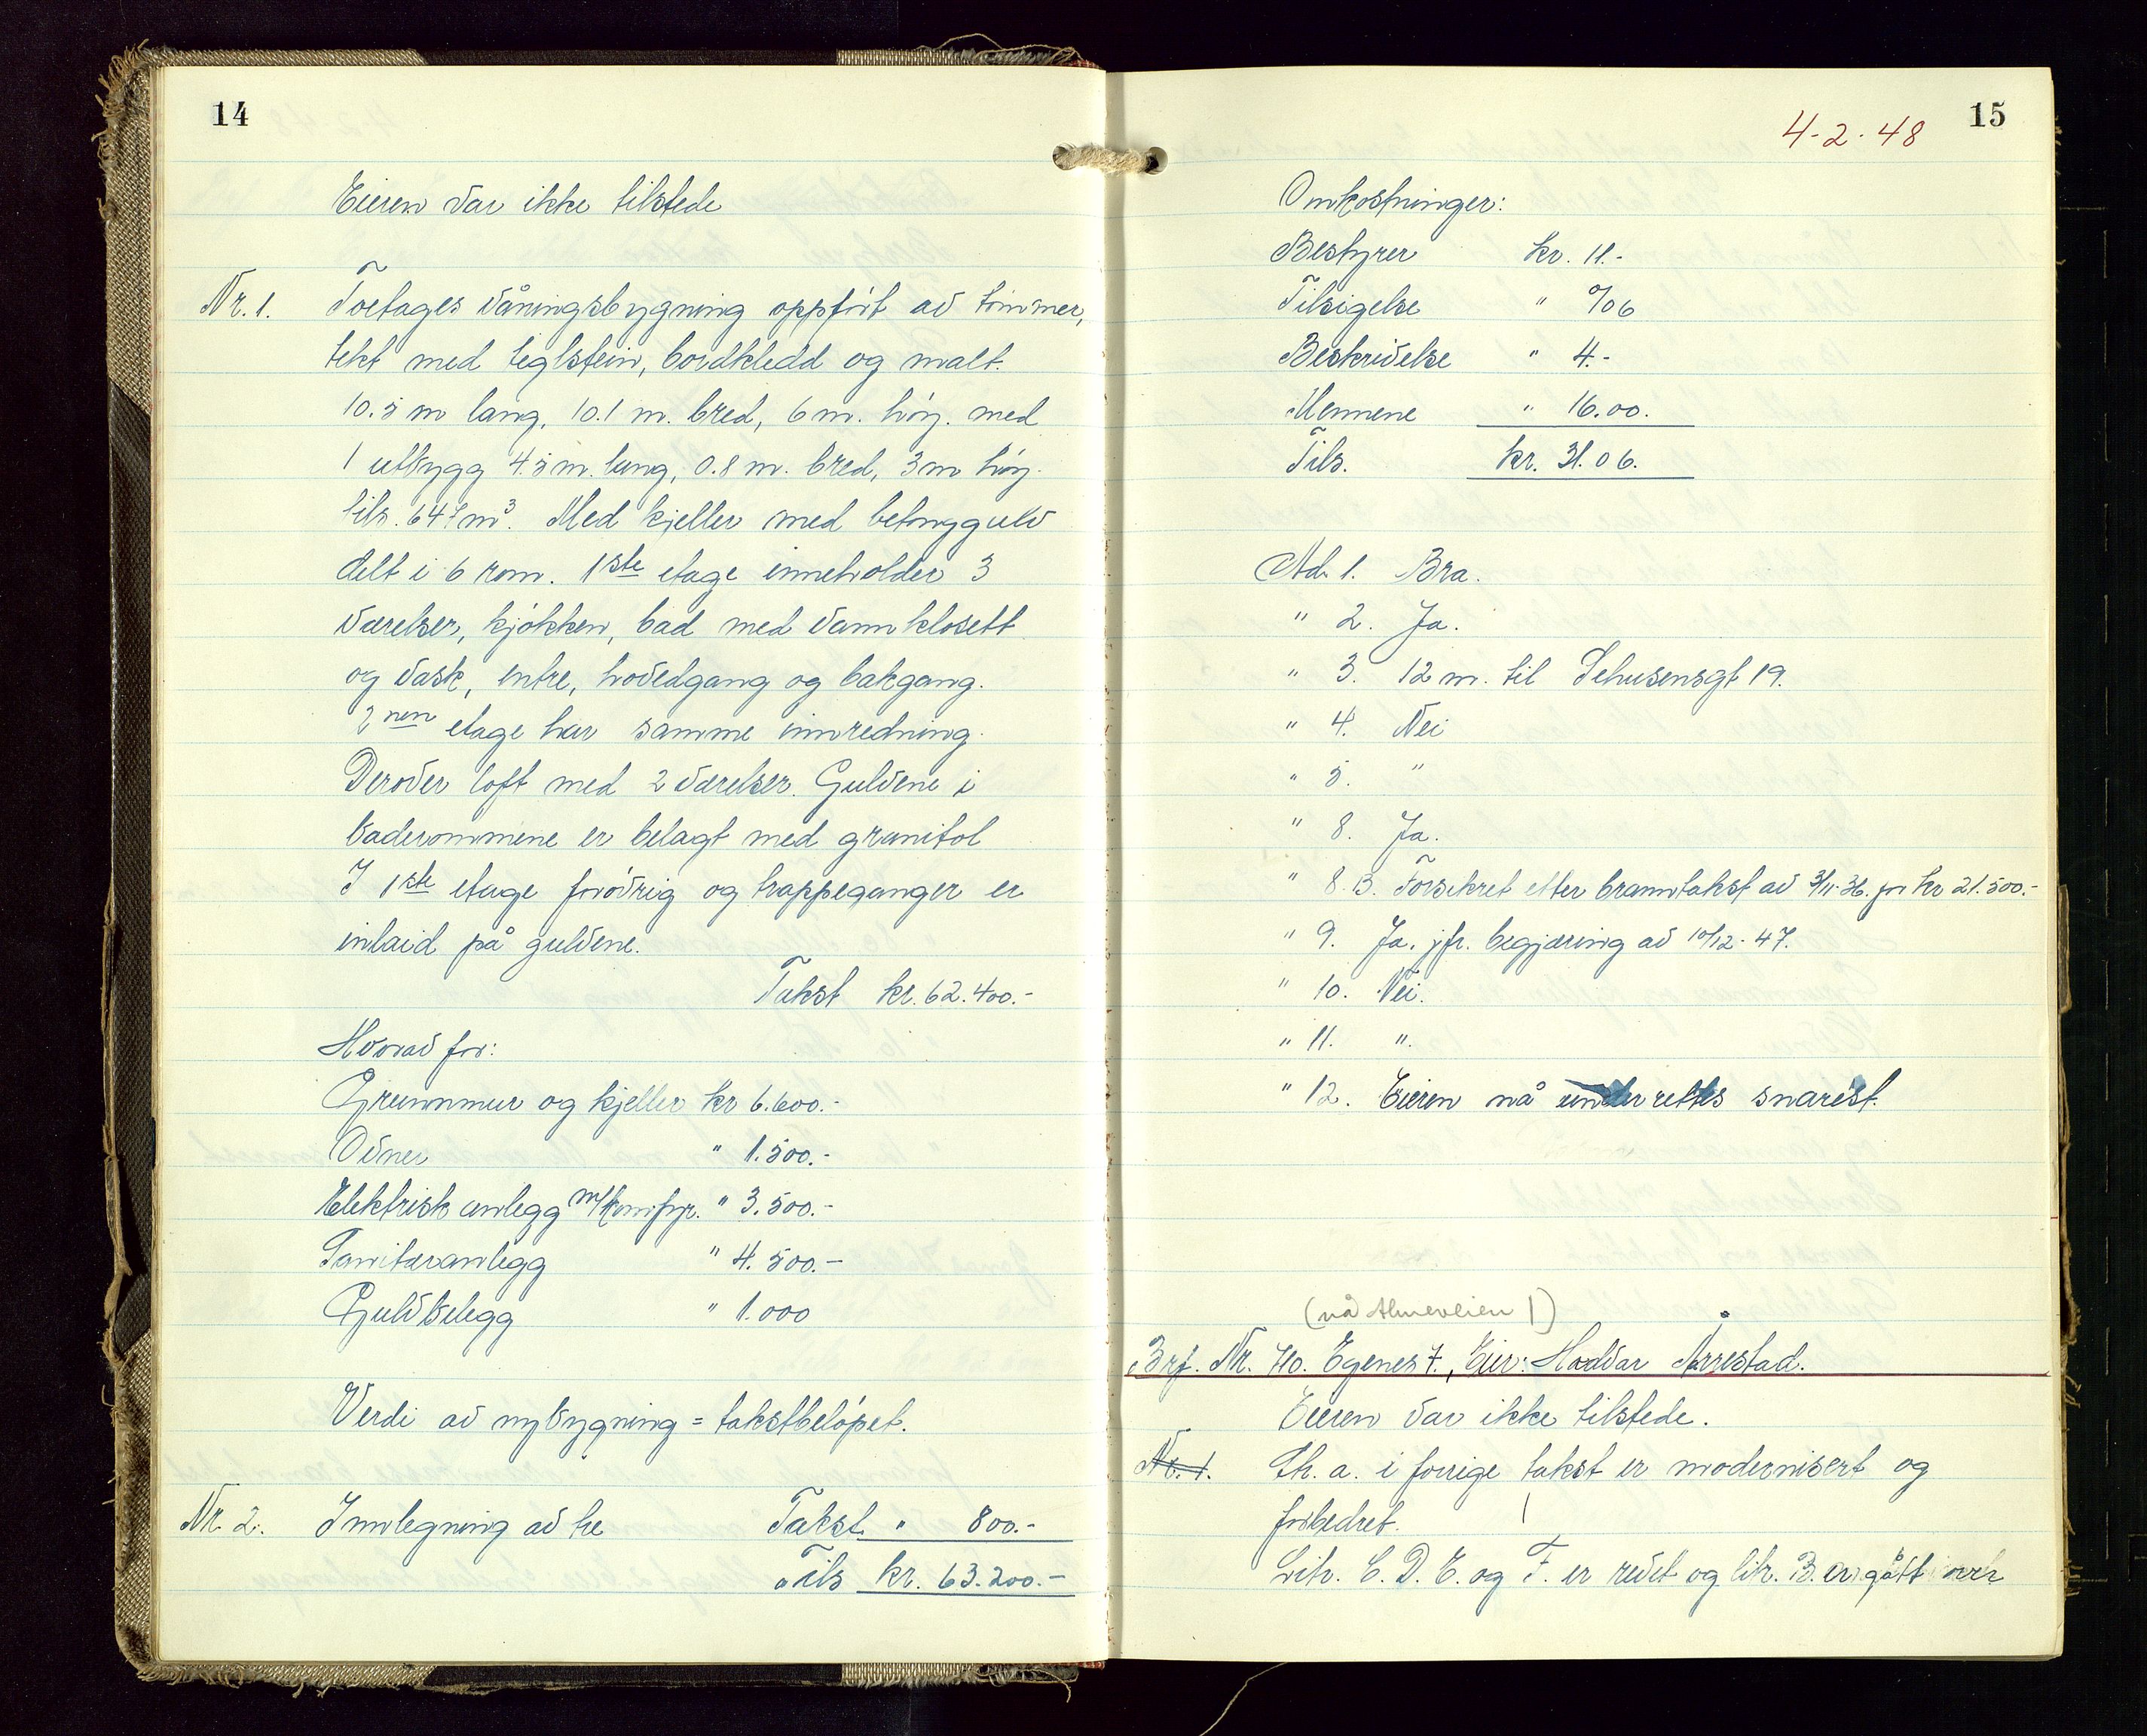 14
Eieren var ikke tilstede
Nr. 1. Toetages våningsbygning oppført av tømmer,
tekt med teglstein, bordkledd og malt.
10.5 m lang, 10.1 m. bred, 6 m. høy. med
1 utbygg 4.5 m. lang, 0.8 m. bred, 3 m høy.
tils. 647 m³. Med kjeller med betonggulv
delt i 6 rom. 1ste etage inneholder 3
værelser, kjøkken, bad med vannklosett
og vask, entre, hovedgang og bakgang.
2nen etage har samme innredning.
Derover loft med 2 værelser. Gulvene i
baderommene er belagt med granitol
I 1ste etage forøvrig og trappeganger er
inlaid på gulvene.
Takst kr. 62.400.-
Hvorav for:
Grunnmur og kjeller kr 6.600.-
Ovner " 1.500.-
Elektrisk anlegg m/komfyr. " 3.500.-
Sanitæranlegg " 4.500.-
Gulvbelegg " 1.000
Verdi av nybygning = takstbeløpet.
Nr. 2. Innlegning av tre Takst " 800.-
Tils kr. 63.200.-
15
4-2-48
Omkostninger:
Bestyrer kr. 11.-
Tilsigelse " 0/06
Beskrivelse " 4.-
Mennene " 16.00.
Tils. kr. 31.06.
Ad. 1. Bra.
" 2. Ja.
" 3. 12 m. til Sehusensgt 19.
" 4. Nei
" 5. "
" 8. Ja.
" 8. B. Forsikret etter branntakst av 3/11-36. for kr 21.500.-
" 9. Ja. jfr. begjæring av 10/12-47.
" 10. Nei.
" 11. ".
" 12. Eieren må underrettes snarest.
(nå Almeveien 1)
Brf. Nr. 70. Egenes 7., Eier: Hadvar Årrestad.
Eieren var ikke tilstede.
Nr. 1. Lh. a. i forrige takst er modernisert og
forbedret.
Litr. C. D. E. og F. er revet og litr. B. er gått